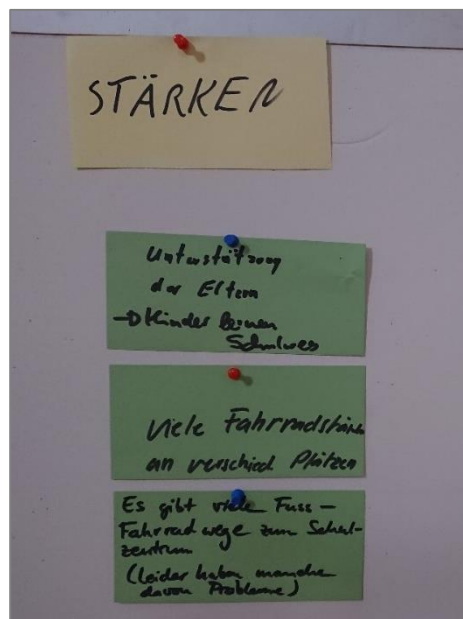 STÄRKEN
Unterstützung
der Eltern
→ Kinder lernen
Schulweg
Viele Fahrradständer
an verschied Plätzen
Es gibt viele Fuss-
Fahrradwege zum Schul-
zentrum
(leider haben manche
davon Probleme)